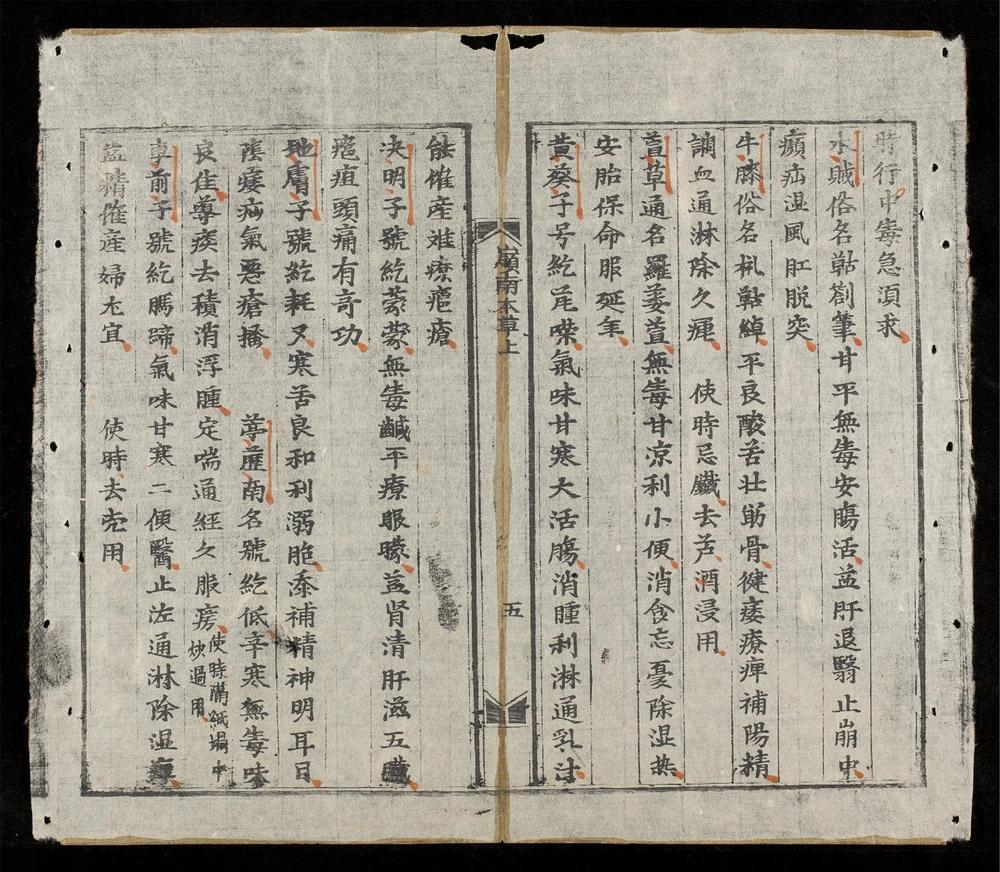 時行中毒急湏求
水賊俗名𦹵劄筆甘平無毒安膓活益肝退翳止崩中
癲疝湿風肛脫突
牛膝俗名𦹵綽平良酸苦壮筋骨健痿療痺補陽精
調血通淋除久瘧 使時忌鐵去芦酒浸用
萱草通名羅萎萱無毒甘凉利小便消食忘憂除湿热
安胎保命服延年
黃葵子号紇𦬑㗫氣味甘寒大活膓消腫利淋通乳汁
能催産难療瘡
嶺南本草上
五
决明子號紇蒙蒙無毒鹹平療眼矇益肾清肝滋五臓
疽頭痛有竒功
地膚子號紇耗又寒苦良和利溺胞添補精神明耳目
陰痿疝氣惡瘡搔
葶藶南名號紇低辛寒無毒味
良佳導痰去積消浮腫定喘通經久服房
使時隔紙塲中
炒過用
車前子號紇馬蹄氣味甘寒二便醫止泄通淋除湿痺
益精催産婦尤宜 使時去壳用